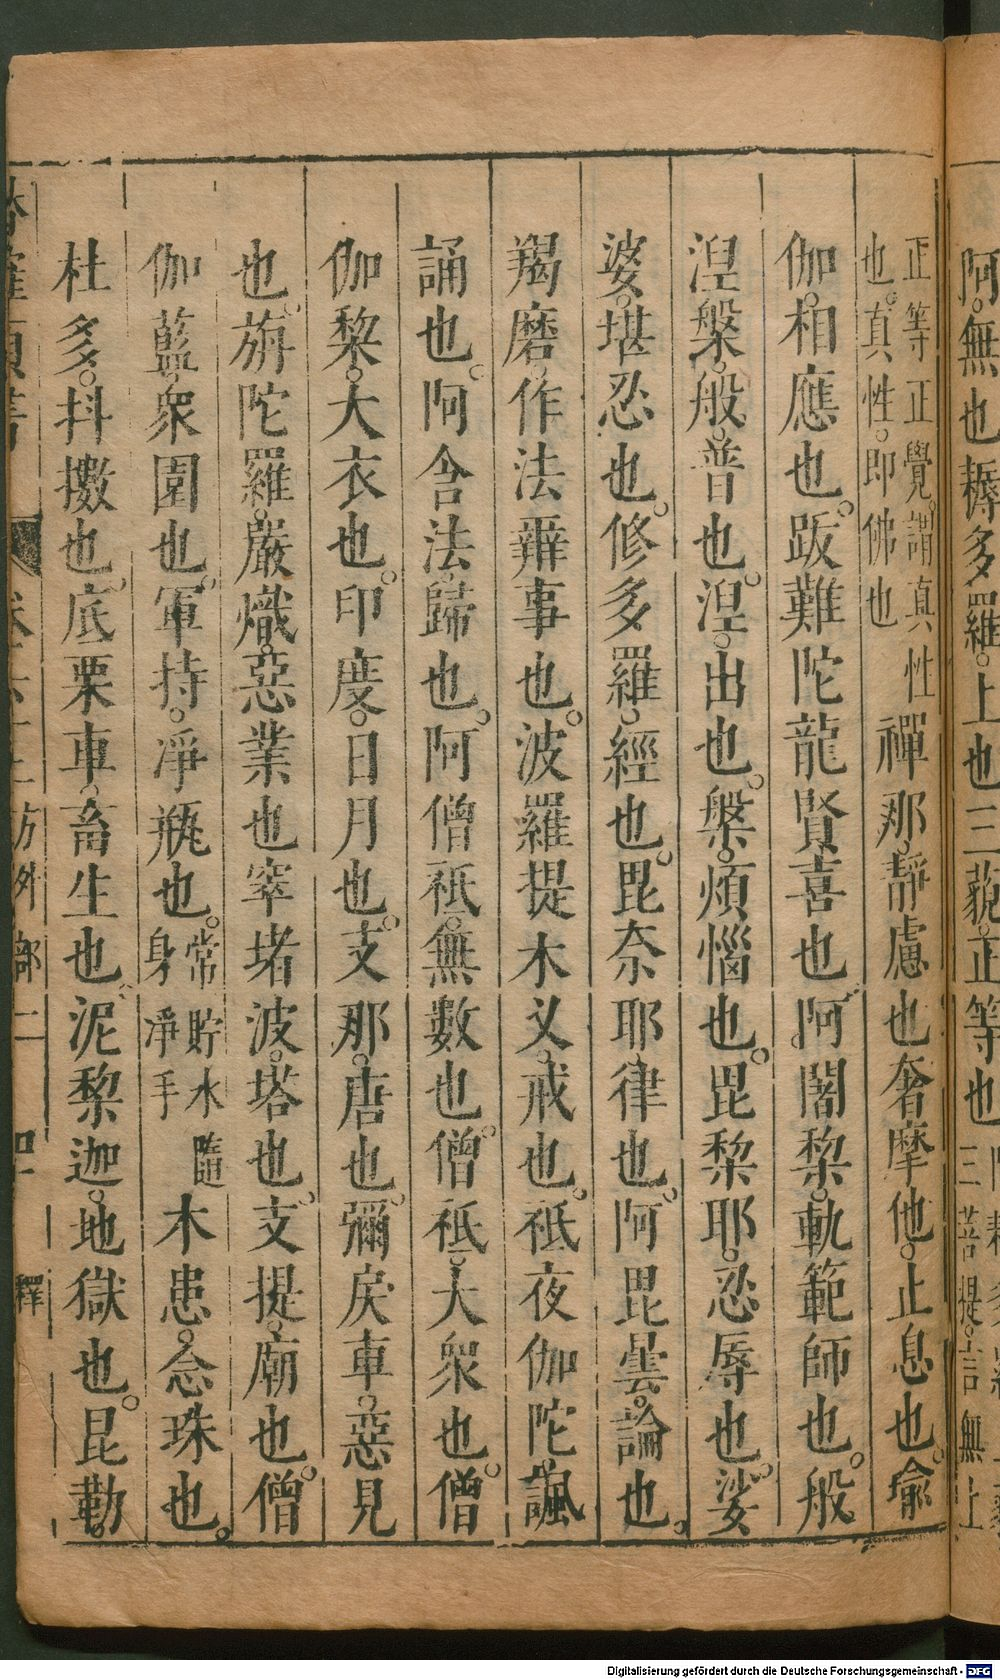 阿。無也耨多羅。上也三藐。正等也
三菩提。言無上
正等正覺。謂真性
也。真性。即佛也
禪那。靜慮也奢摩他。止息也。瑜
伽。相應也。跋難陀龍賢喜也阿闍棃。軌範師也。般
湼槃。般。普也。湼。出也。槃。煩惱也。毘棃耶。忍辱也。娑
婆。堪忍也。修多羅。經也。毘奈耶律也。阿毘曇。論也。
羯磨。作法辦事也。波羅提木叉。戒也。祗夜伽陀。諷
誦也。阿含法歸也。阿僧祗。無數也。僧祗。大衆也。僧
伽黎。大衣也。印度。日月也。支那。唐也。彌戾車。惡見
也。旃陀羅。嚴熾。惡業也窣堵波。塔也。支提。廟也。僧
伽藍。衆園也。軍持。凈瓶也。常貯水隨
身凈手
木患。念珠也。
杜多。抖擻也。底栗車。畜生也泥黎迦。地獄也。昆勒。
方外部二
釋
Digitalisierung gefördert durch die Deutsche Forschungsgemeinschaft - DFG